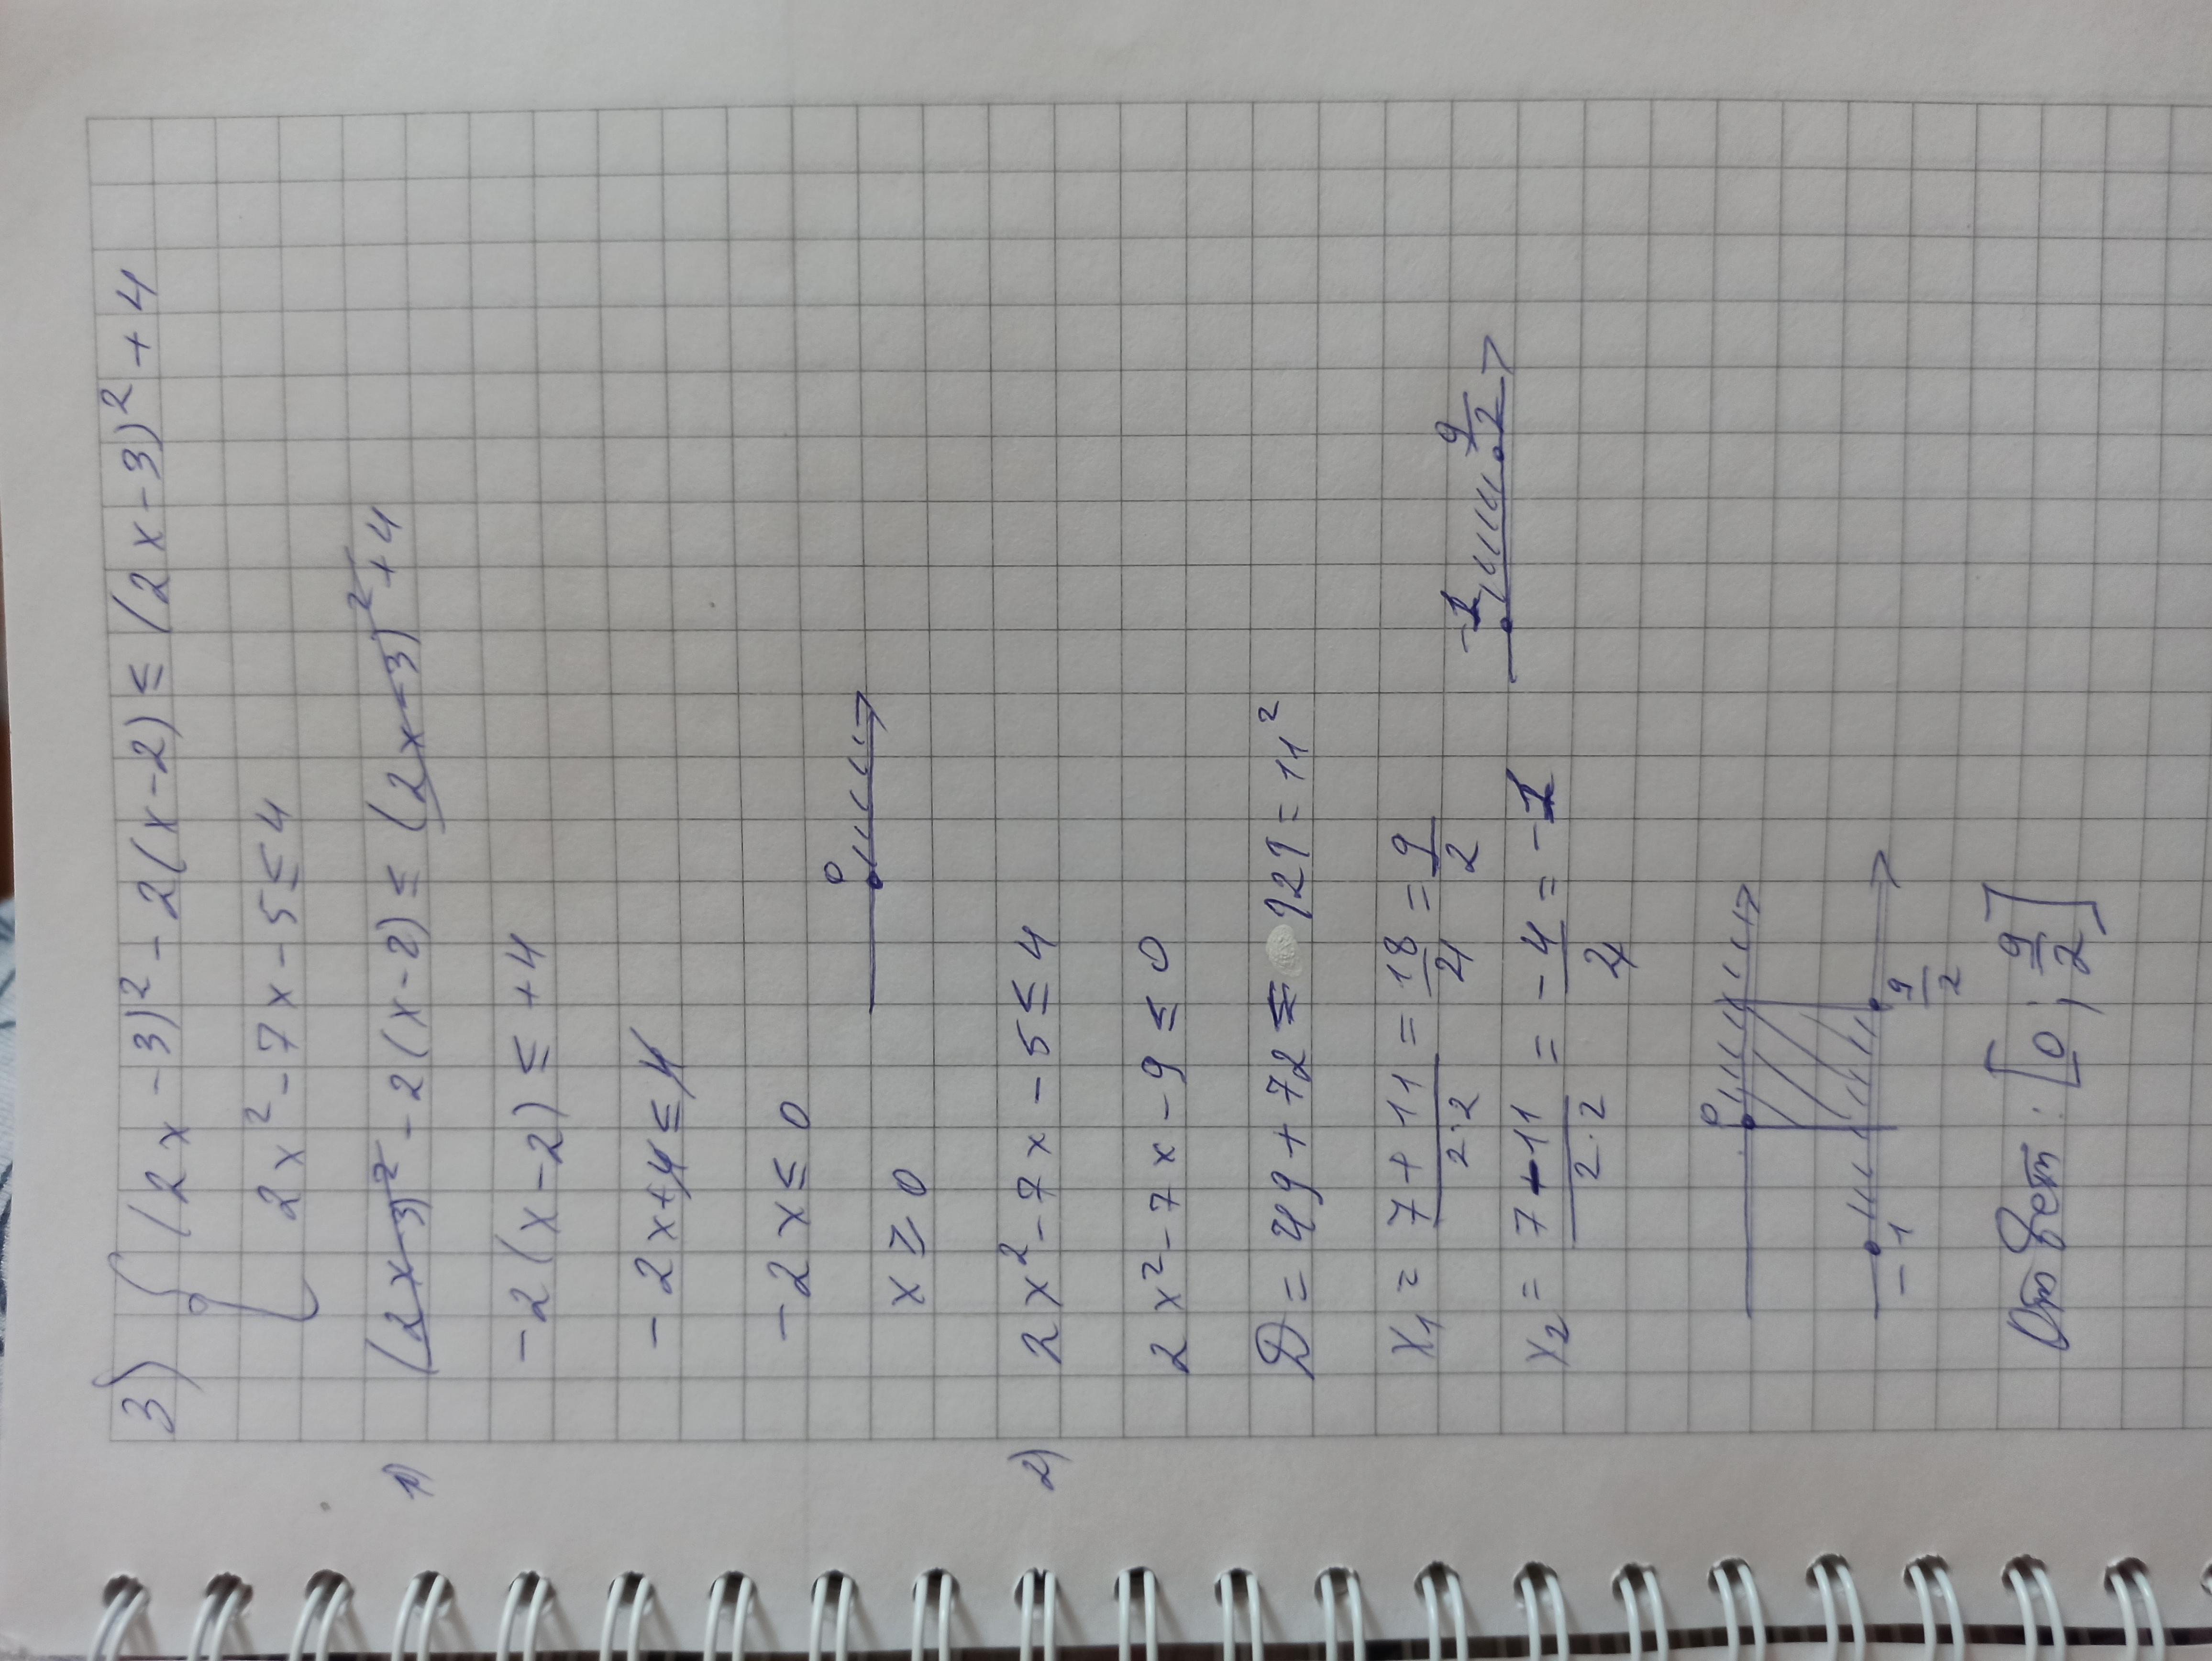 3) { (2x-3)² - 2(x-2) ≤ (2x-3)² + 4
2x² - 7x - 5 ≤ 4
1) (2x-3)² - 2(x-2) ≤ (2x-3)² + 4
-2(x-2) ≤ +4
-2x+4 ≤ 4
-2x ≤ 0
x ≥ 0
0
2) 2x² - 7x - 5 ≤ 4
2x² - 7x - 9 ≤ 0
D = 49 + 72 = 121 = 11²
x₁ = (7+11)/(2·2) = 18/4 = 9/2
x₂ = (7-11)/(2·2) = -4/4 = -1
-1 9/2
0
-1 9/2
Ответ: [0; 9/2]